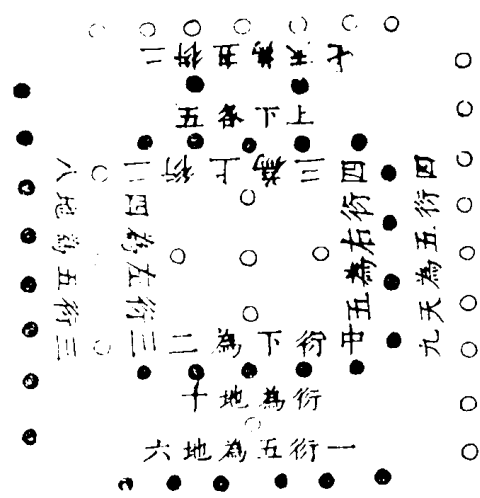 七天為五衍二
上下各五
三為上衍二
八地為五衍三
四為左衍三
中五為右衍四
九天為五衍四
二為下衍
十地為衍
六地為五衍一